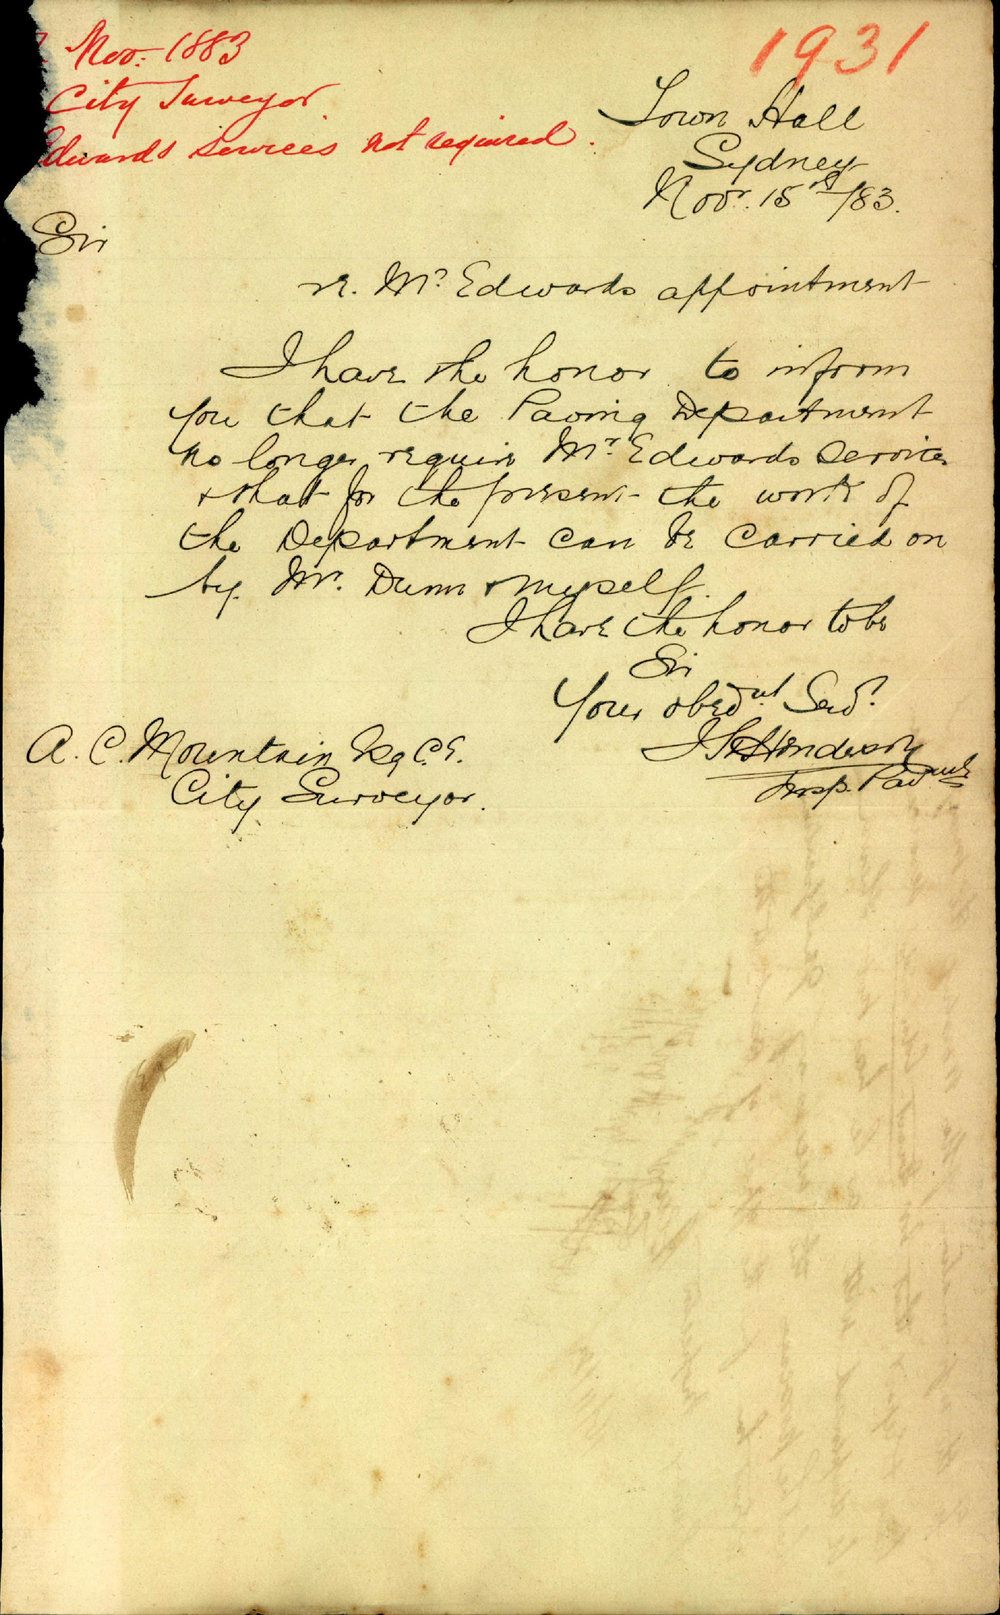 Nov: 1883
City Surveyor
Edwards services not required.
1931
Town Hall
Sydney
Nov. 15th/83.
Sir
re. Mr. Edwards appointment
I have the honor to inform
you that the Paving Department
no longer require Mr. Edwards services
& that for the present the work of
the Department can be carried on
by Mr. Dunn & myself.
I have the honor to be
Sir
Your obednt. Servt.
Henderson
Insp. Pavmts
A. C. Mountain Esq C.E.
City Surveyor.